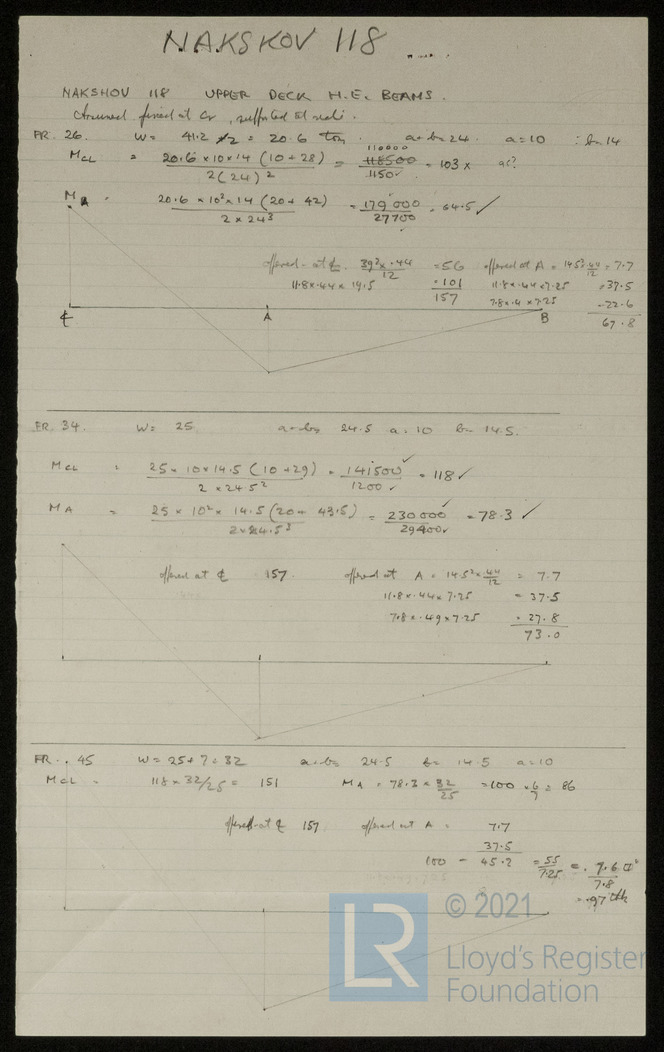 NAKSKOV 118
NAKSHOV 118 UPPER DECK H.E. BEAMS.
Assumed fixed at CL, supported at side.
FR. 26. W = 41.2 ÷2 = 20.6 ton a+b=24. a=10 : b=14
MCL = 20.6×10×14 (10+28) / 2(24)2 = 110000 118500 / 1150 = 103 ×
MA = 20.6 × 10²×14 (20+42) / 2×24³ = 179000 / 27700 = 64.5 ✓
offered at ℄ 39²×.44 / 12 = 56 offered at A = 14.5²×.44 / 12 = 7.7
11.8×.44×19.5 = 101 11.8×.44×7.25 = 37.5
157 7.8×.4×7.25 = 22.6
67.8
℄ A B
FR. 34. W = 25 a+b= 24.5 a=10 b= 14.5.
MCL = 25×10×14.5 (10+29) / 2×24.5² = 141500 / 1200 ✓ = 118 ✓
MA = 25 × 10² × 14.5 (20+43.5) / 2×24.5³ = 230000 / 29400 ✓ = 78.3 ✓
offered at ℄ 157 offered at A = 14.5²×.44 / 12 = 7.7
11.8×.44×7.25 = 37.5
7.8×.49×7.25 = 27.8
73.0
FR. 45 W = 25+7 = 32 a+b= 24.5 b= 14.5 a=10
MCL = 118×32/25 = 151 MA = 78.3×32/25 = 100 ×6/7 = 86
offered at ℄ 157 offered at A = 7.7
37.5
100 - 45.2 = 55 / 7.25 = 7.6 □" / 7.8
= .97
© 2021
LR
Lloyd's Register
Foundation